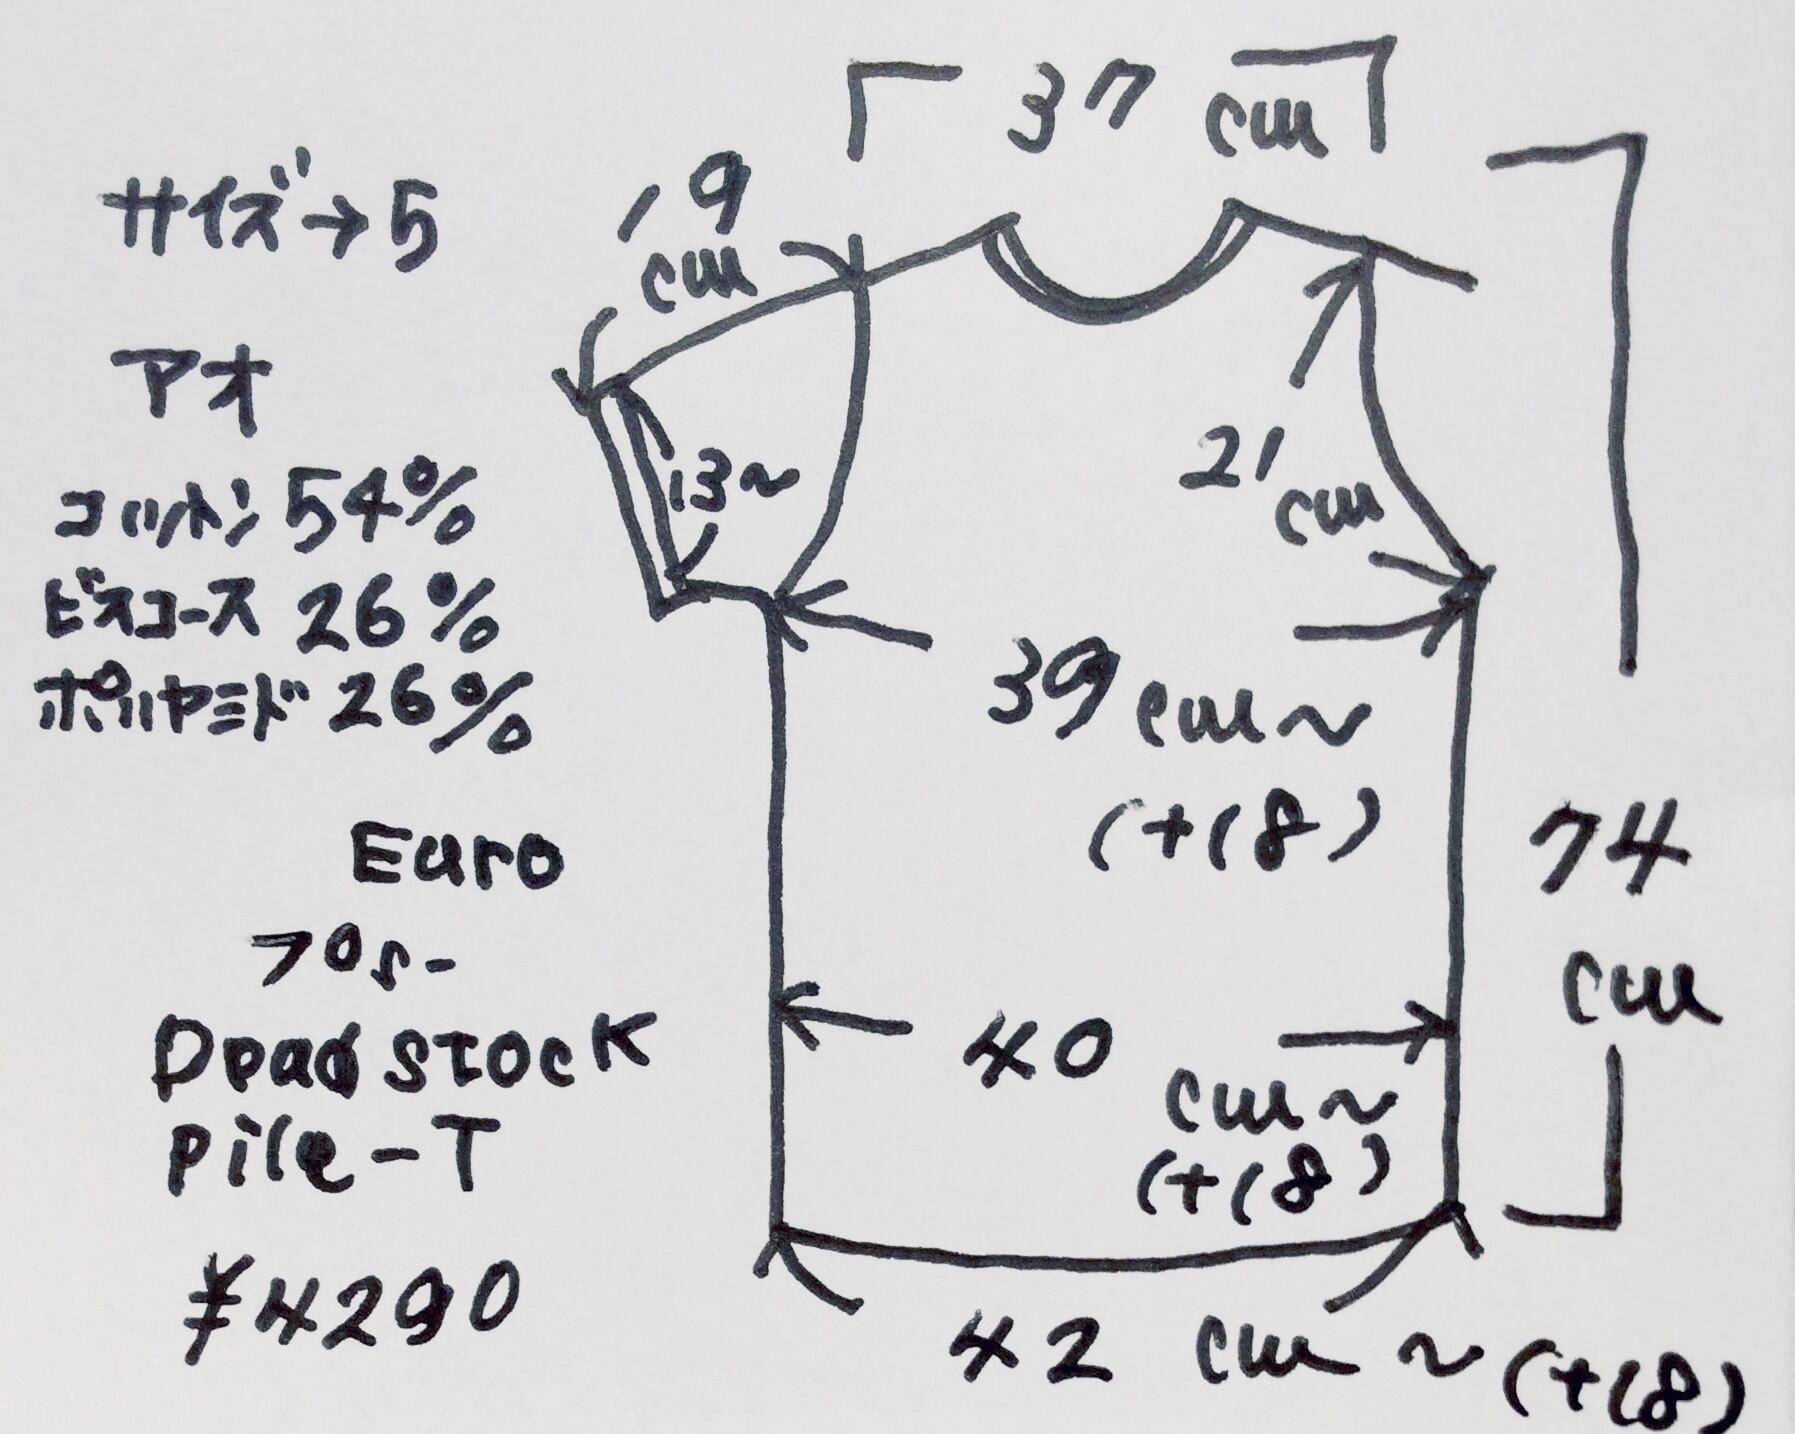 サイズ→5
アオ
コットン 54%
ビスコース 26%
ポリヤミド 26%
Euro
70s-
Dead stock
pile-T
¥4290
37 cm
19
cm
13~
21
cm
39 cm~
(+18)
74
cm
40
cm~
(+18)
42 cm ~ (+18)